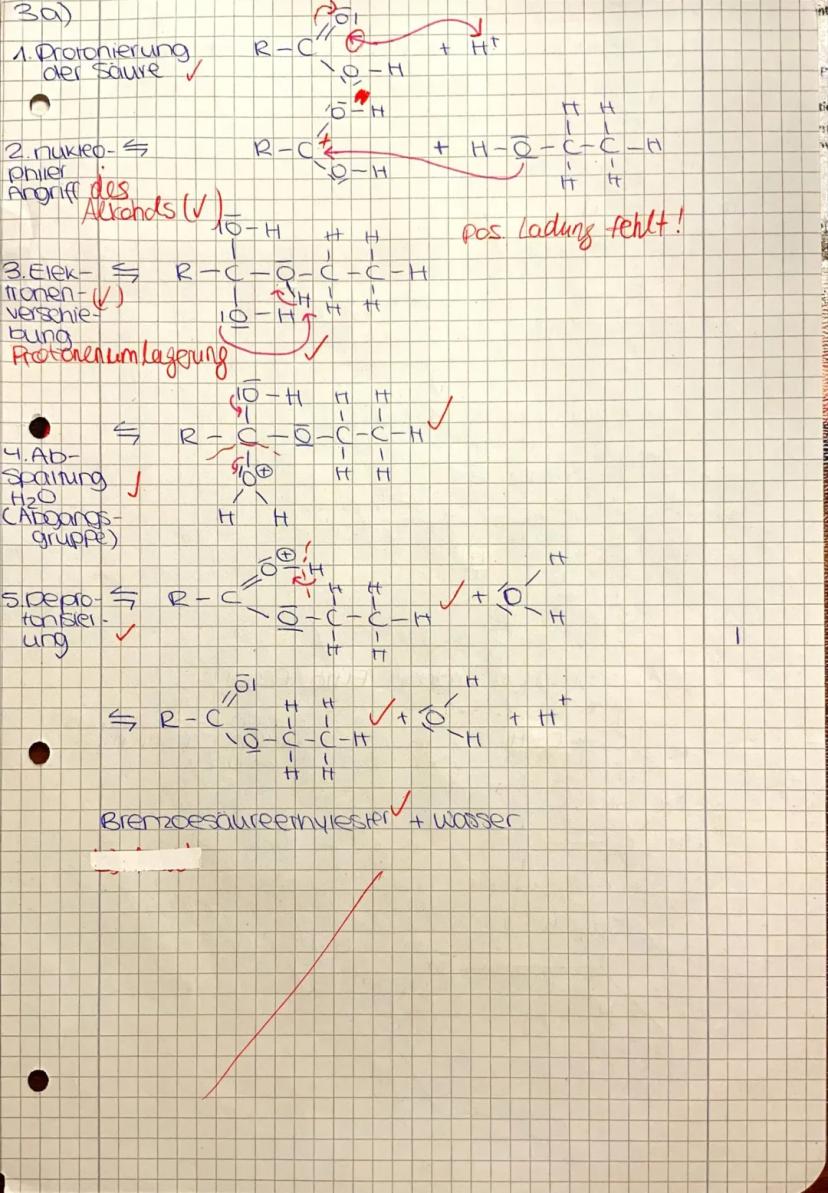 3a)
1. Protonierung
der Säure ✓
R-C
O
O-H
+ H+
2. nukleo-
philer
Angriff des
Alkohols (✓)
⇋ R-C
O-H
+
O-H
+ H-O-C-C-H
H H
H H
pos. Ladung fehlt!
3. Elek-
tronen- (✓)
verschie-
bung
Protonenumlagerung ✓
⇋ R-C-O-C-C-H
O-H
H H
H
H H
O-H
⇋ R-C-O-C-C-H ✓
O-H
H H
H H
O ⊕
H H
4. Ab-
spaltung ✓
H2O
(Abgangs-
gruppe)
5. Depro-
tonisier-
ung ✓
⇋ R-C
O-H
⊕
O-C-C-H ✓ + O
H H
H H
H
H
⇋ R-C
O
O-C-C-H ✓ + O + H+
H H
H H
H
H
Brenzoesäureethylester ✓ + Wasser